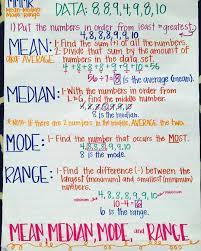 MMMR
Mean-Median
Mode-Range
DATA: 8,8,9,4,9,8,10
1) Put the numbers in order from least → greatest.
4,8,8,8,9,9,10
MEAN:
(AKA) AVERAGE
1- Find the sum (+) of all the numbers.
2- Divide that sum by the amount of
numbers in the data set.
4+8+8+8+9+9+10=56
56÷7=8
8 is the average (mean).
MEDIAN:
1- With the numbers in order from
L→G, find the middle number.
4,8,8,8,9,9,10
8 is the median.
*Note: If there are 2 numbers in the middle, AVERAGE the two.
MODE:
1- Find the number that occurs the MOST.
4,8,8,8,9,9,10
8 is the mode.
RANGE:
1- Find the difference (-) between the
largest (maximum) and smallest (minimum)
numbers.
4,8,8,8,9,9,10
minimum
maximum
10-4=6
6 is the range.
MEAN, MEDIAN, MODE, and RANGE